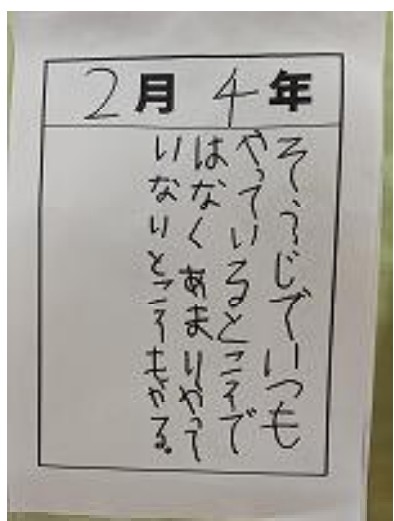 2月 4年
そうじでいつも
やっているところで
はなくあまりやって
いないところもやる。